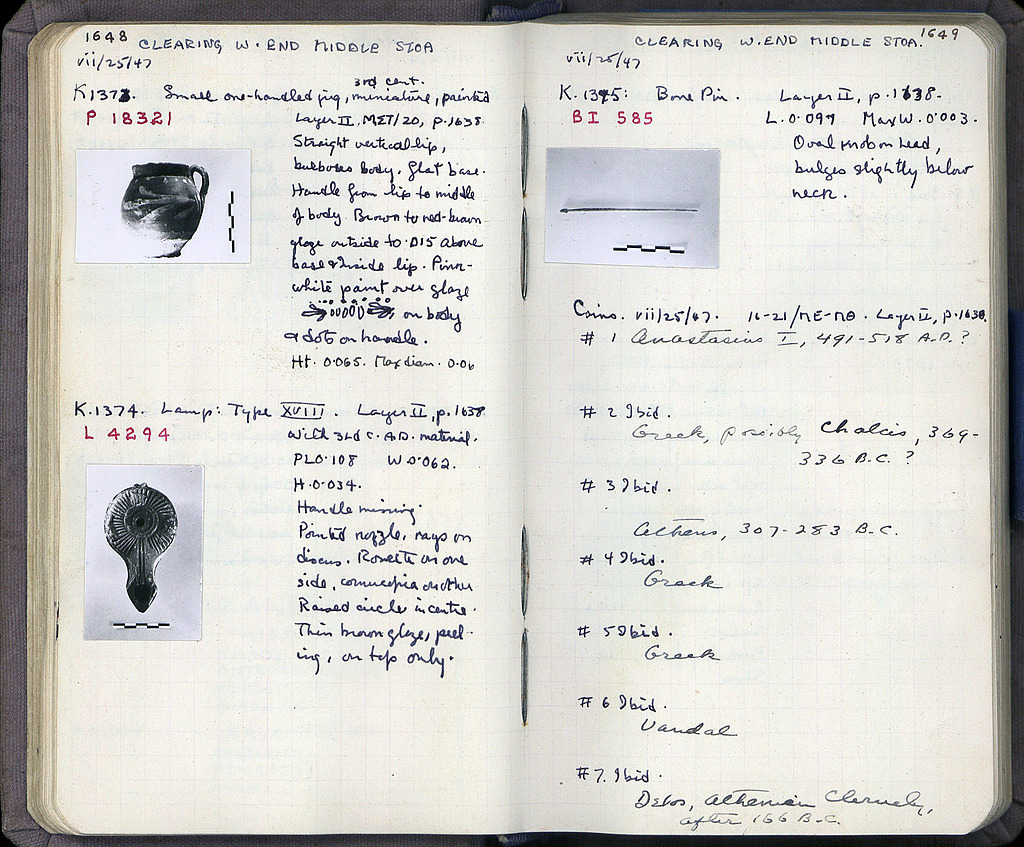 1648 CLEARING W. END MIDDLE STOA
vii/25/47
K1373. Small one-handled jug, miniature, painted
3rd cent.
P 18321
Layer II, MET/20, p.1638.
Straight vertical lip,
bulbous body. Flat base.
Handle from lip to middle
of body. Brown to red-brown
glaze outside to .015 above
base & inside lip. Pink-
white paint over glaze
on body
& dots on handle.
Ht. 0.065. Max diam. 0.06
K.1374. Lamp: Type XVIII. Layer II, p.1638
L 4294
With 3rd c. A.D. material.
PL 0.108 W 0.062.
H. 0.034.
Handle missing.
Pointed nozzle, rays on
discus. Rosette on one
side, cornucopia on other
Raised circle in centre.
Thin brown glaze, peel-
ing, on top only.
CLEARING W. END MIDDLE STOA. 1649
vii/25/47
K. 1375: Bone Pin. Layer II, p.1638.
BI 585
L. 0.099 Max W. 0.003.
Oval knob on head,
bulges slightly below
neck.
Coins. vii/25/47. 16-21/ME-MΘ. Layer II, p.1638.
# 1 Anastasius I, 491-518 A.D.?
# 2 Ibid.
Greek, possibly Chalcis, 369-
336 B.C. ?
# 3 Ibid.
Athens, 307-283 B.C.
# 4 Ibid.
Greek
# 5 Ibid.
Greek
# 6 Ibid.
Vandal
# 7. Ibid.
Delos, Athenian Cleruchy,
after 166 B.C.